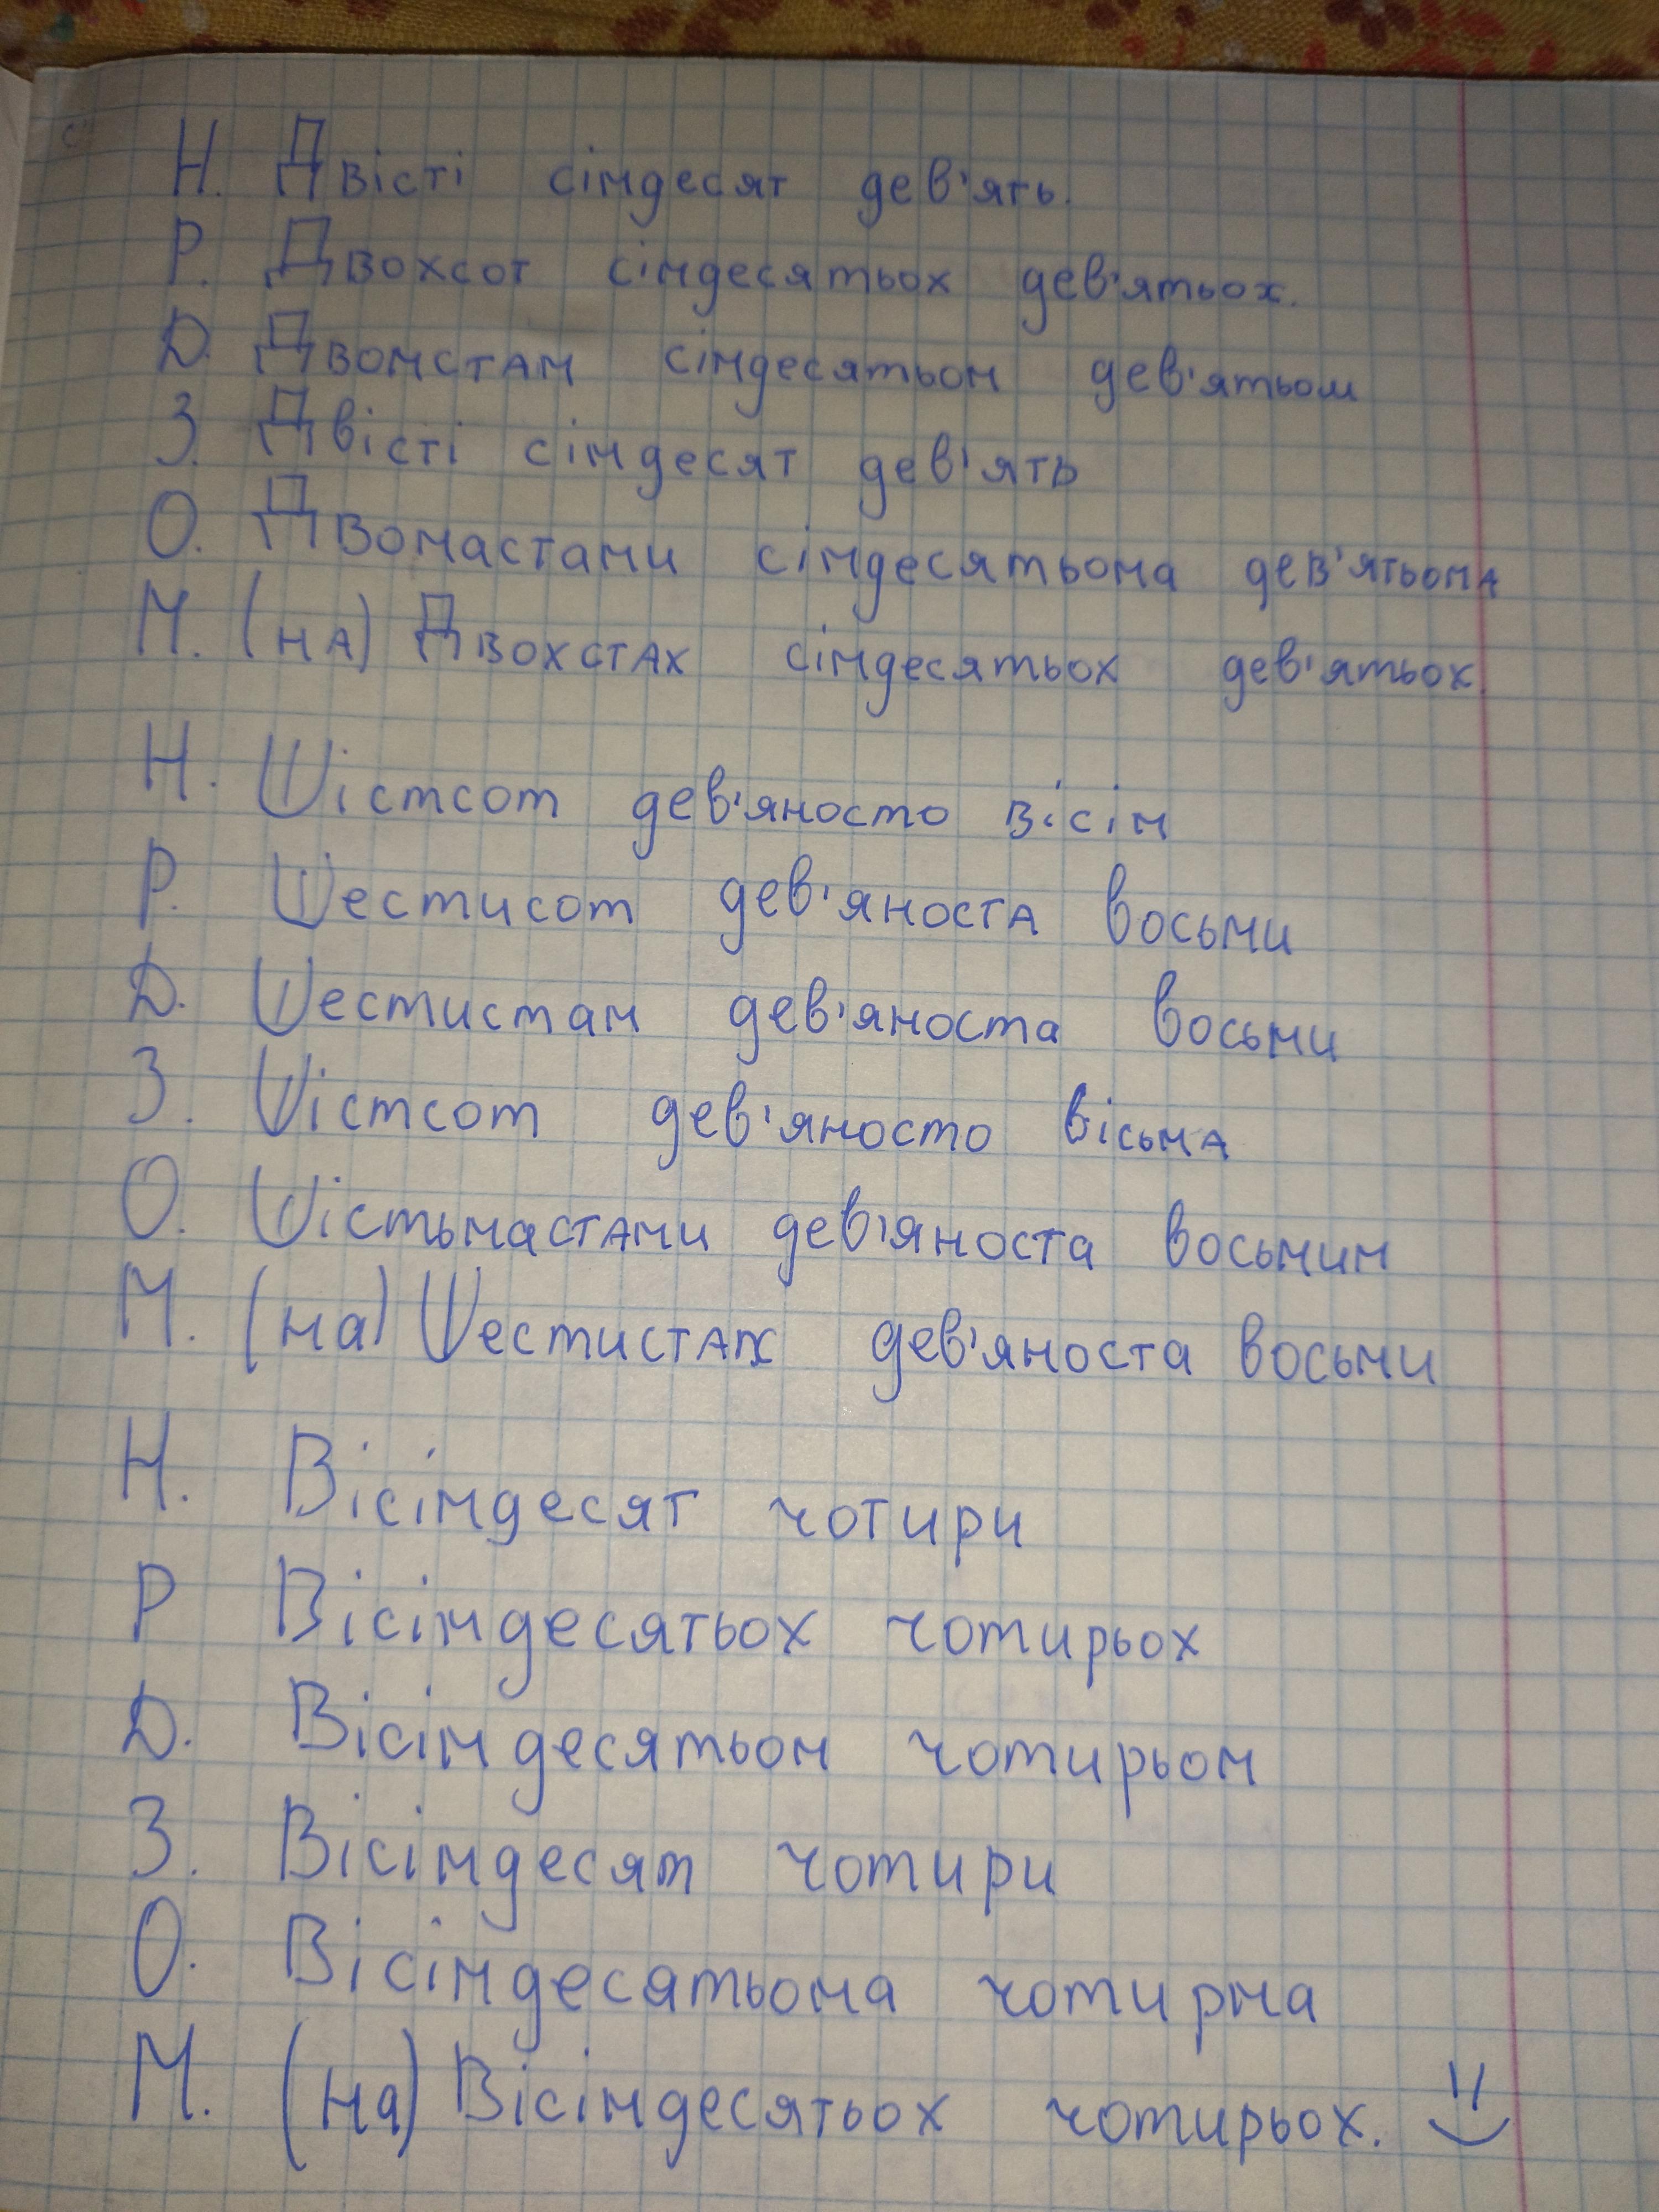 Н. Двісті сімдесят дев'ять.
Р. Двохсот сімдесятьох дев'ятьох.
Д. Двомстам сімдесятьом дев'ятьом
З. Двісті сімдесят дев'ять
О. Двомастами сімдесятьома дев'ятьома
М. (на) Двохстах сімдесятьох дев'ятьох.
Н. Шістсот дев'яносто вісім
Р. Шестисот дев'яноста восьми
Д. Шестистам дев'яноста восьми
З. Шістсот дев'яносто вісьма
О. Шістьмастами дев'яноста восьмим
М. (на) Шестистах дев'яноста восьми
Н. Вісімдесят чотири
Р Вісімдесятьох чотирьох
Д. Вісімдесятьом чотирьом
З. Вісімдесят чотири
О. Вісімдесятьома чотирма
М. (на) Вісімдесятьох чотирьох.